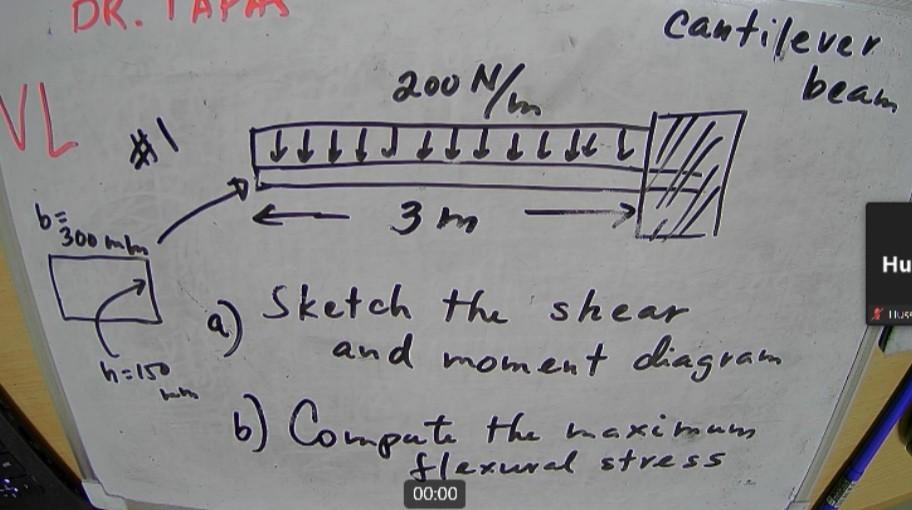 DR. TAPAS
cantilever
beam
VL
#1
200 N/m
3 m
b=
300 mm
h=150
mm
a) Sketch the shear
and moment diagram
b) Compute the maximum
flexural stress
00:00
Hu